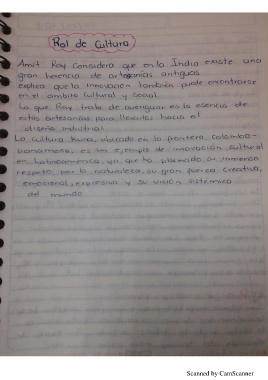 Rol de Cultura
Amit Roy Considera que en la India existe una
gran herencia de artesanías antiguas
explica que la innovación también puede encontrarse
en el ámbito Cultural y Social.
Lo que Roy trata de averiguar es la esencia de
estas artesanías para llevarlas hacia el
diseño industrial
La cultura Kuna, ubicada en la frontera colombo-
panameña, es un ejemplo de innovación cultural
en Latinoamérica, ya que ha plasmado su inmenso
respeto por la naturaleza, su gran fuerza creativa,
emocional, expresiva y su visión sistémica
del mundo
Scanned by CamScanner